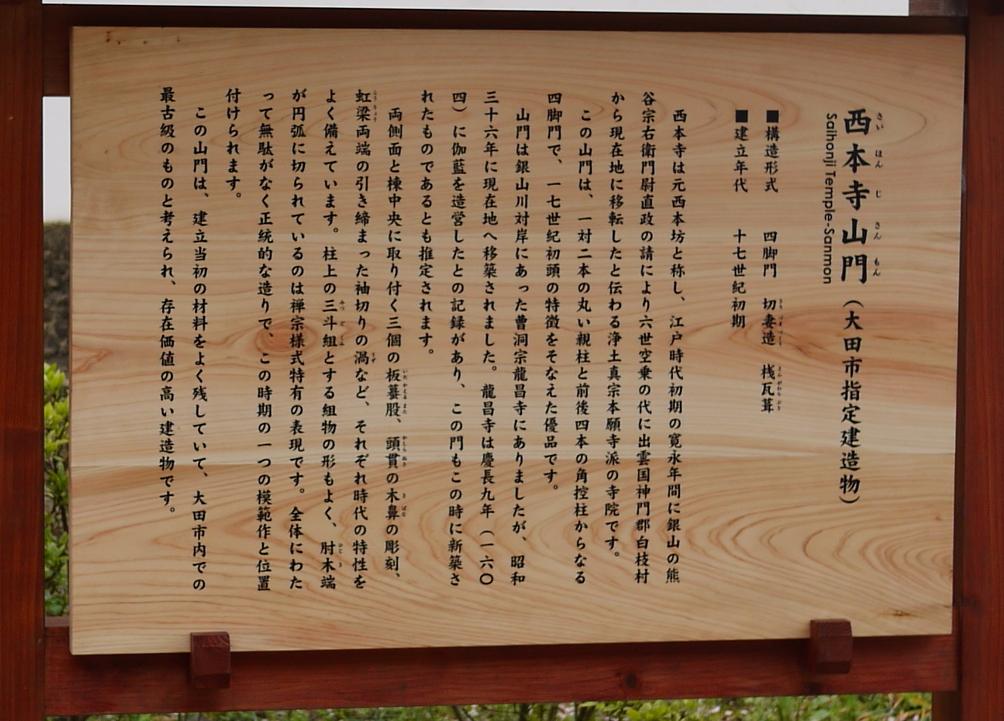 西本寺山門（大田市指定建造物）
さい ほん じ さん もん
Saihonji Temple-Sanmon
■構造形式　四脚門　切妻造　桟瓦葺
■建立年代　十七世紀初期
西本寺は元西本坊と称し、江戸時代初期の寛永年間に銀山の熊
谷宗右衛門尉直政の請により六世空乗の代に出雲国神門郡白枝村
から現在地に移転したと伝わる浄土真宗本願寺派の寺院です。
この山門は、一対二本の丸い親柱と前後四本の角控柱からなる
四脚門で、一七世紀初頭の特徴をそなえた優品です。
山門は銀山川対岸にあった曹洞宗龍昌寺にありましたが、昭和
三十六年に現在地へ移築されました。龍昌寺は慶長九年（一六〇
四）に伽藍を造営したとの記録があり、この門もこの時に新築さ
れたものであるとも推定されます。
両側面と棟中央に取り付く三個の板蟇股、頭貫の木鼻の彫刻、
虹梁両端の引き締まった袖切りの渦など、それぞれ時代の特性を
よく備えています。柱上の三斗組とする組物の形もよく、肘木端
が円弧に切られているのは禅宗様式特有の表現です。全体にわた
って無駄がなく正統的な造りで、この時期の一つの模範作と位置
付けられます。
この山門は、建立当初の材料をよく残していて、大田市内での
最古級のものと考えられ、存在価値の高い建造物です。